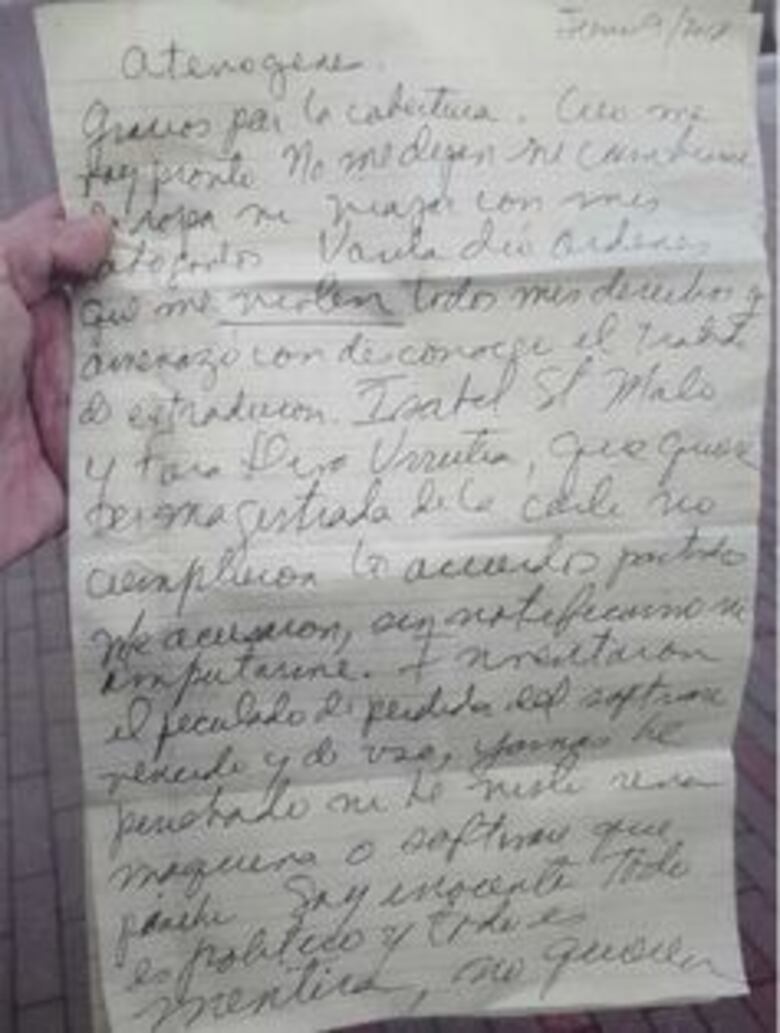 Atenogene
Gracias por la cobertura. Creo me
hoy pronto No me dejan ni cambiarme
la ropa ni viajar con mis
abogados Varela dio ordenes
que me violen todos mis derechos y
amenazó con desconocer el
de extradicion. Isabel St Malo
y Urrutia, que quiere
ser magistrada de la corte no
cumplieron los acuerdos
Me acusaron, sin notificarme ni
imputarme. Inventaron
el peculado de perdida del software
y de uso, jamas he
pinchado ni he visto una
maquina o software que
pinche Soy inocente Todo
es politico y todo es
mentira, no quieren